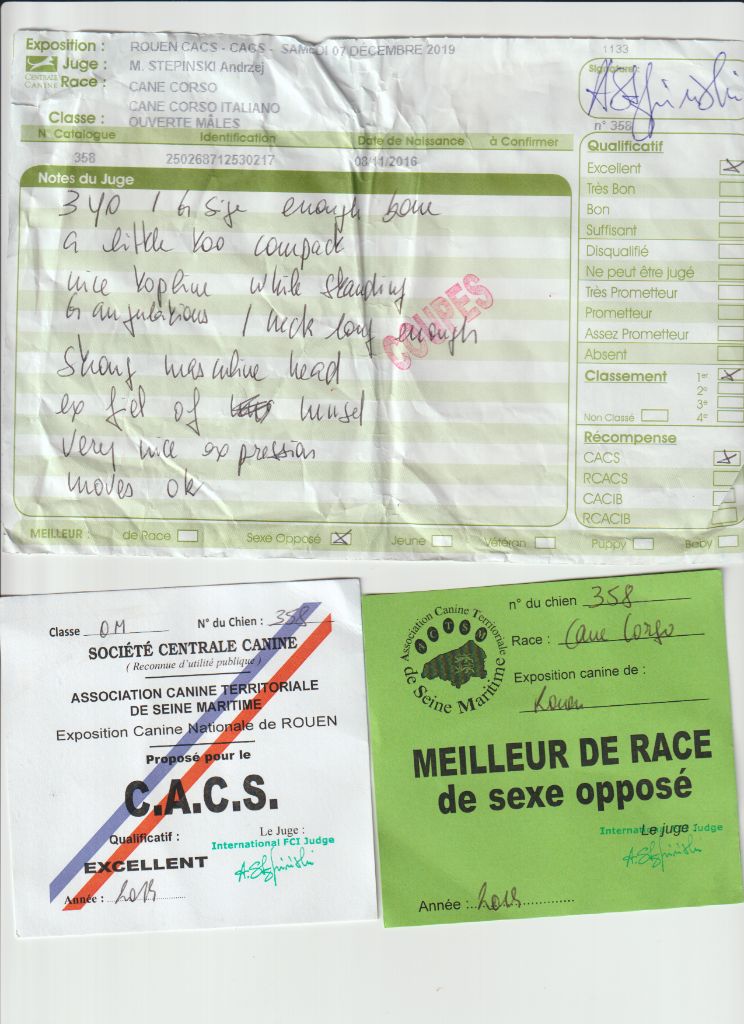 Exposition : ROUEN CACS - CACS - SAMEDI 07 DÉCEMBRE 2019
1133
Juge : M. STEPINSKI Andrzej
Signature :
CENTRALE CANINE
Race : CANE CORSO
CANE CORSO ITALIANO
Classe : OUVERTE MÂLES
n° 358
N° Catalogue Identification Date de Naissance à Confirmer
358 250268712530217 08/11/2016
Notes du Juge
3 yo / G size enough bone
a little too compact
nice topline while standing
G angulations / neck long enough
strong masculine head
ex of
very nice expression
moves ok
COUPES
Qualificatif
Excellent X
Très Bon
Bon
Suffisant
Disqualifié
Ne peut être jugé
Très Prometteur
Prometteur
Assez Prometteur
Absent
Classement 1er X
2e
3e
Non Classé 4e
Récompense
CACS X
RCACS
CACIB
RCACIB
MEILLEUR : de Race Sexe Opposé X Jeune Vétéran Puppy Baby
Classe OM N° du Chien : 358
SOCIÉTÉ CENTRALE CANINE
( Reconnue d'utilité publique )
ASSOCIATION CANINE TERRITORIALE
DE SEINE MARITIME
Exposition Canine Nationale de ROUEN
Proposé pour le
C.A.C.S.
Qualificatif : Le Juge :
International FCI Judge
EXCELLENT
A. Stępiński
Année : 2019
Association Canine Territoriale
ACTSM
de Seine Maritime
n° du chien 358
Race : Cane Corso
Exposition canine de :
Rouen
MEILLEUR DE RACE
de sexe opposé
Le juge
International FCI Judge
A. Stępiński
Année : 2019